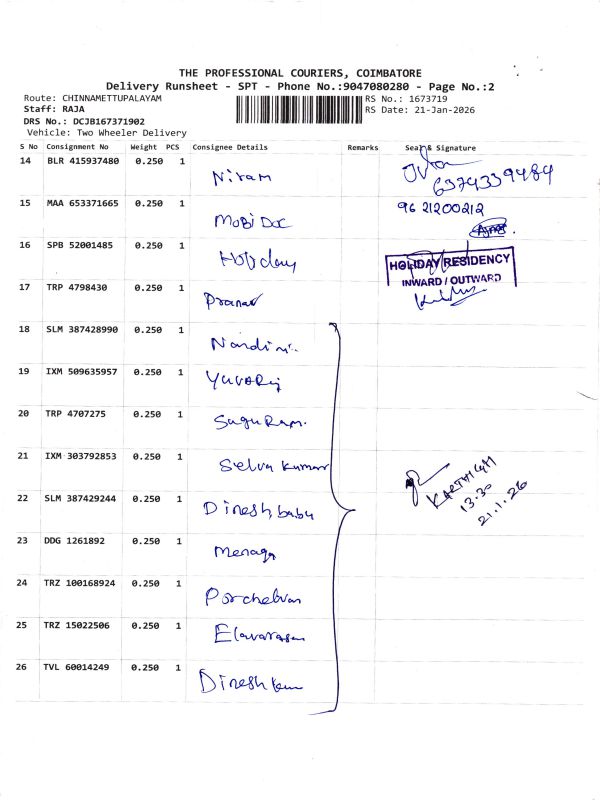 THE PROFESSIONAL COURIERS, COIMBATORE
Delivery Runsheet - SPT - Phone No.:9047080280 - Page No.:2
Route: CHINNAMETTUPALAYAM RS No.: 1673719
Staff: RAJA RS Date: 21-Jan-2026
DRS No.: DCJB167371902
Vehicle: Two Wheeler Delivery
S No Consignment No Weight PCS Consignee Details Remarks Seal & Signature
14 BLR 415937480 0.250 1 Niram 6374339484
15 MAA 653371665 0.250 1 MOBi DOC 9621200212
16 SPB 52001485 0.250 1 Holiday
HOLIDAY RESIDENCY
INWARD / OUTWARD
17 TRP 4798430 0.250 1 Pranav
18 SLM 387428990 0.250 1 Nandini
19 IXM 509635957 0.250 1 YUVARAj
20 TRP 4707275 0.250 1 SuguRam.
21 IXM 303792853 0.250 1 Selva Kumar
KARTHIGA
13.30
21.1.26
22 SLM 387429244 0.250 1 Dinesh babu
23 DDG 1261892 0.250 1 Menaga
24 TRZ 100168924 0.250 1 Porchelvan
25 TRZ 15022506 0.250 1 Elavarasan
26 TVL 60014249 0.250 1 Dinesh